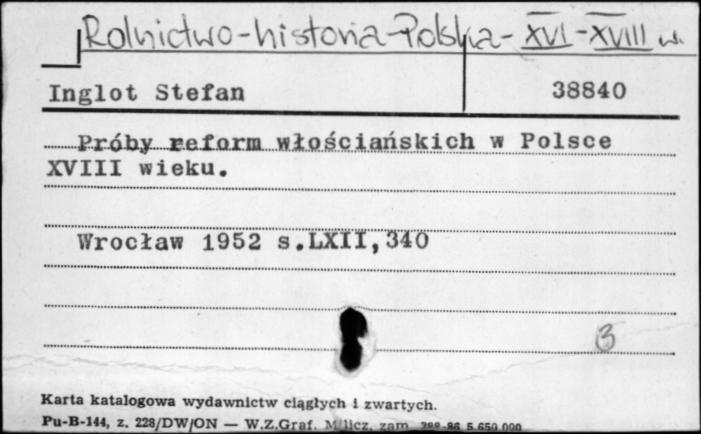 Rolnictwo-historia-Polska-XVI-XVIII w.
Inglot Stefan 38840
Próby reform włościańskich w Polsce
XVIII wieku.
Wrocław 1952 s.LXII,340
3
Karta katalogowa wydawnictw ciągłych i zwartych.
Pu-B-144, z. 228/DW/ON — W.Z.Graf. Milicz, zam. 298-86 5.650.000